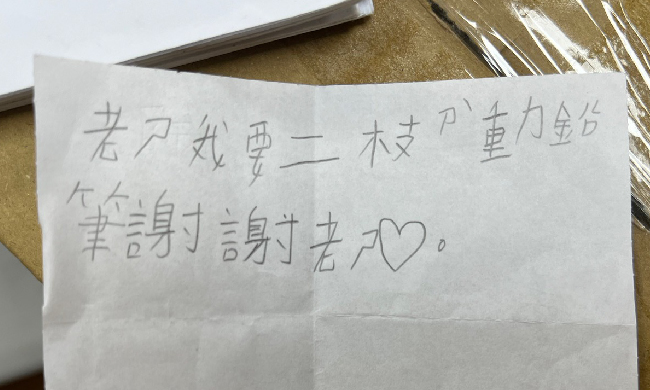 老ㄕ我要二枝ㄗˋ動鉛
筆謝謝老ㄕ♡。